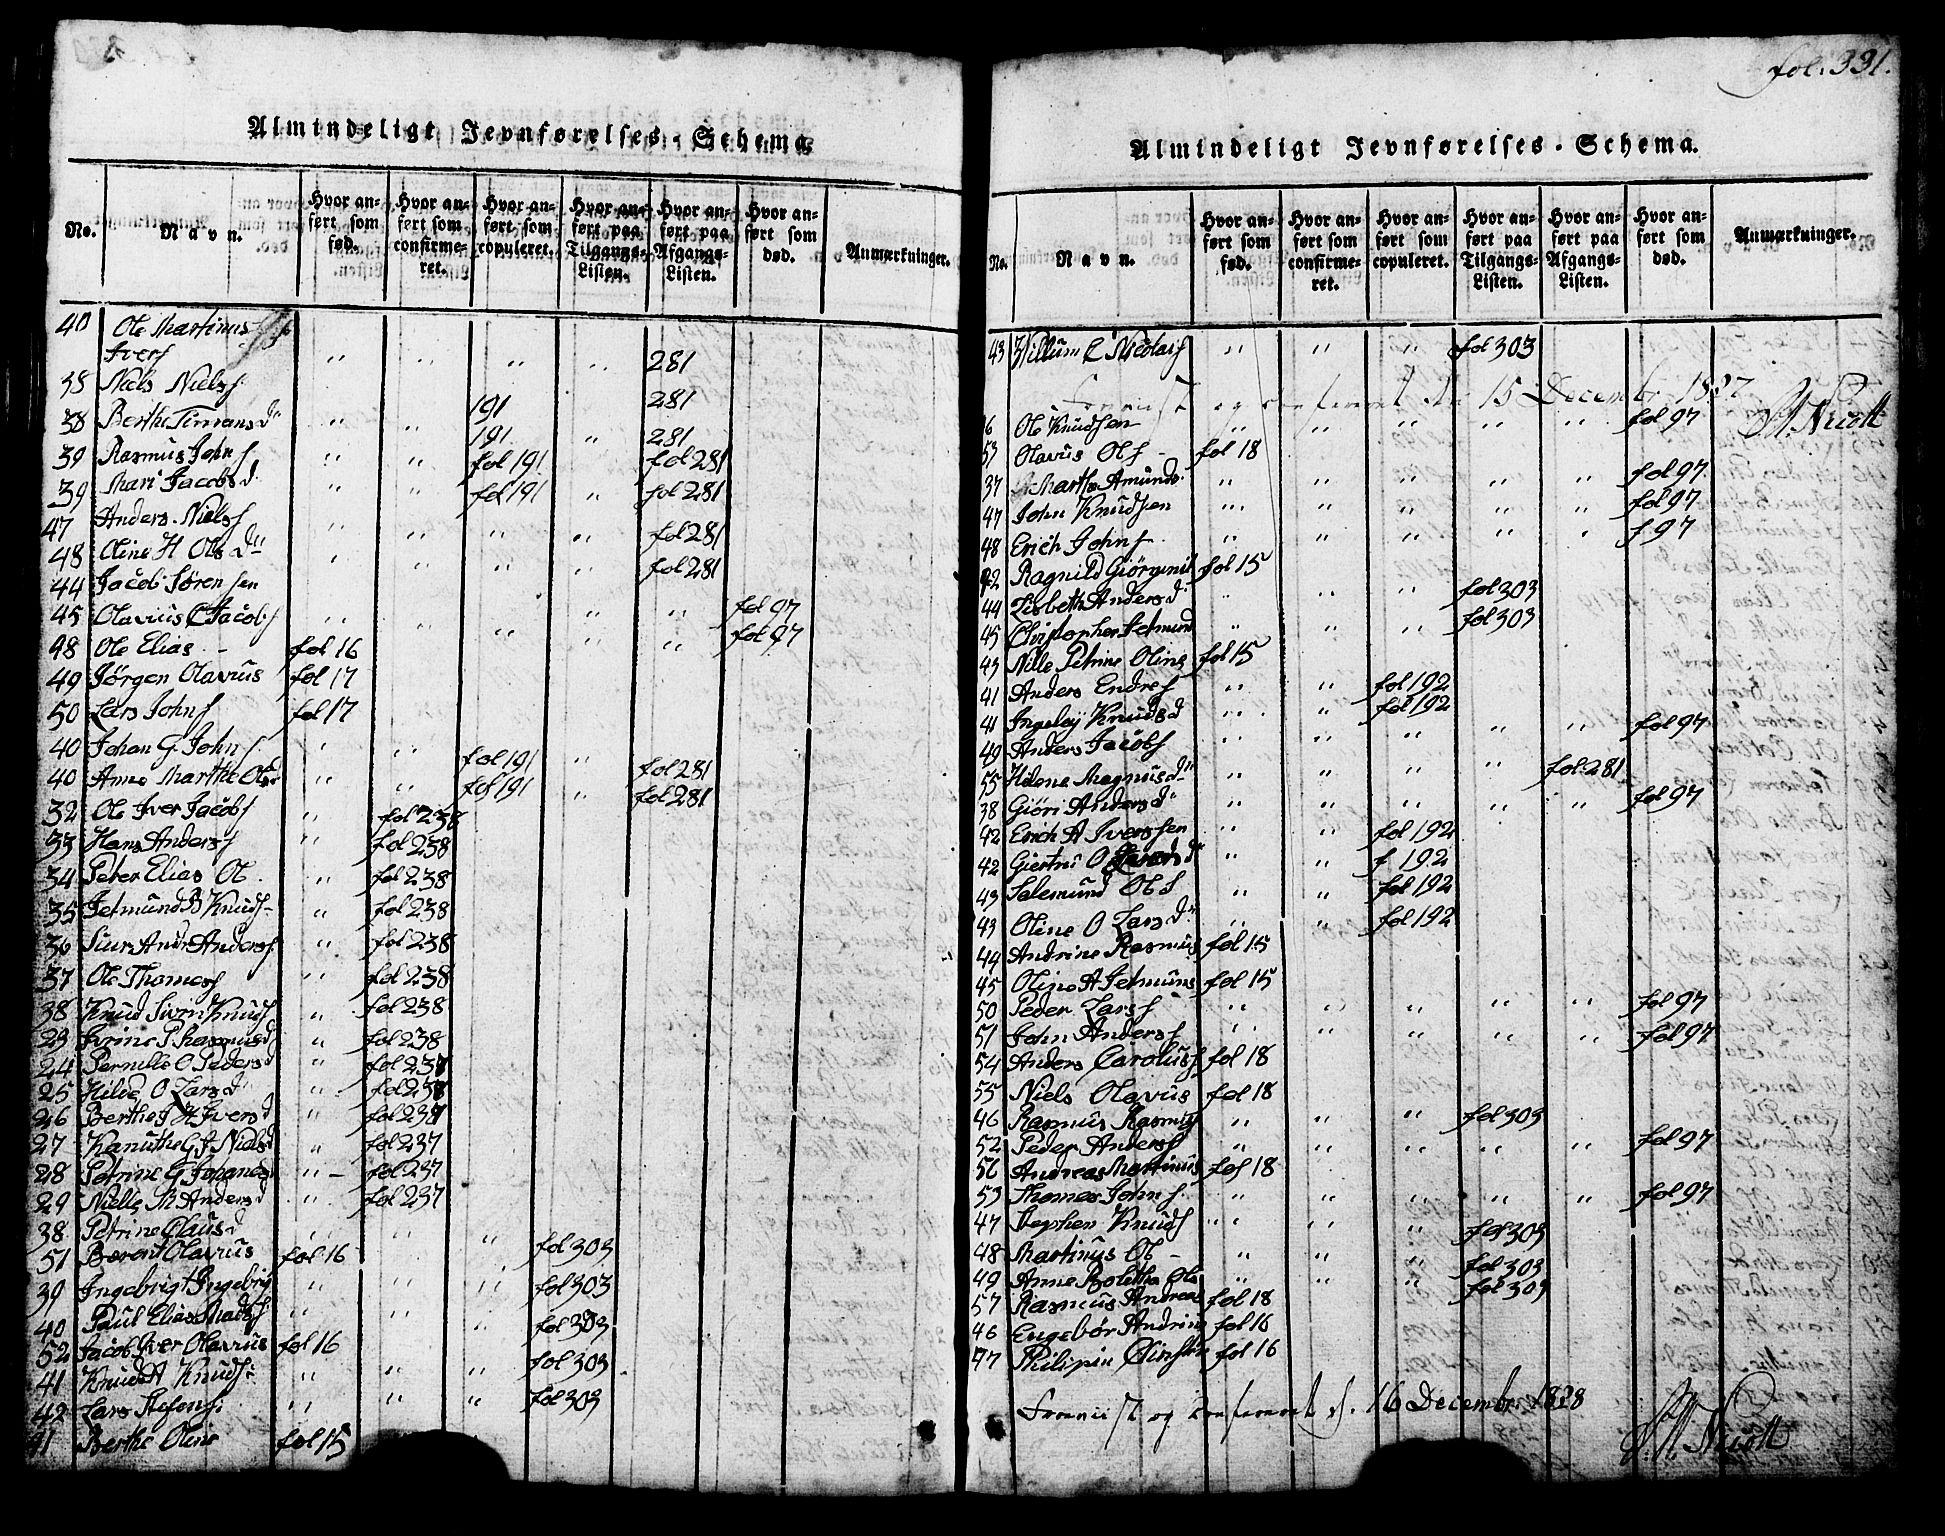 fol. 331.
Almindeligt Jevnførelses-Schema.
No. Navn. Hvor anført som fød. Hvor anført som confirmeret. Hvor anført som copuleret. Hvor anført paa Tilgangs-Listen. Hvor anført paa Afgangs-Listen. Hvor anført som død. Anmærkninger.
40 Ole Martinus
Ivers " " " " 281
38 Niels Niels 191 281
38 Berthe d " 191 " 281
39 Rasmus Johns " " fol 191 fol 281
39 Mari Jacobsd. " " fol 191 " fol 281
47 Anders Niels " " " " fol 281
48 Oline H Ols d " " " " fol 281
44 Jacob Sørensen " " fol 97
45 Olavius C Jacobs " " " " fol 97
48 Ole Elias - fol 16
49 Jørgen Olavius fol 17
50 Lars Johns fol 17
40 Johan G. Johns " " fol 191 " fol 281
40 Anne Marthe Olsd " " fol 191 " fol 281
32 Ole Iver Jacobs " fol 238
33 Hans Anders " fol 238
34 Peter Elias Ol. " fol 238
35 Jetmund B Knuds- " fol 238
36 Siur Andr Anders " fol 238
37 Ole Thomas " fol 238
38 Knud Sivrin Knuds " fol 238
23 Ivrine P Rasmusd " fol 238
24 Pernille O Peders d " fol 238
25 Hilde O Lars d " fol 238
26 Berthe H Ivers d " fol 237
27 Kanuthe G J Niels d " fol 237
28 Petrine G Johanes " - fol 237
29 Nielle M Anders d " fol 237
38 Petrine Claus d " " " fol 303
51 Berent Olavius fol 16
39 Ingebrigt Ingebrig " " " fol 303
40 Paul Elias Mads " " " fol 303
52 Jacob Iver Olavius fol 16
41 Knud A Knuds: " " " fol 303
42 Lars Stefens: " " " fol 303
41 Berthe Oline fol 15
Almindeligt Jevnførelses-Schema.
No. Navn. Hvor anført som fød. Hvor anført som confirmeret. Hvor anført som copuleret. Hvor anført paa Tilgangs-Listen. Hvor anført paa Afgangs-Listen. Hvor anført som død. Anmærkninger.
43 Willum C Nicolais " " " fol 303
og confereret 15 December 1827
6 Ole Knudsen " " " " " fol 97
53 Olavus Ols - fol 18
37 Marthe Amunds. " " " " " fol 97
47 John Knudsen " " " " " fol 97
48 Erich Johns " " " " " f 97
42 Ragnild fol 15
44 Lisbeth Anders d " " " fol 303
45 Christopher Jetmund " " " fol 303
43 Nille Petrine Oline fol 15
41 Anders Endres " " fol 192
41 Ingeley Knuds d " " fol 192
49 Anders Jacobs " " " " " fol 97
55 Helene Magnus d " " " " fol 281
38 Giøri Anders d " " " " " fol 97
42 Erich A Iverssen " " fol 192
42 Giertrü O d " " f 192
43 Salemund Ols " " fol 192
43 Oline O Lars d " " fol 192
44 Andrine Rasmus fol 15
45 Oline A Jetmuns fol 15
50 Peder Lars " " " " " fol 97
51 John Anders " " " " " fol 97
54 Anders Carolus fol 18
55 Niels Olavus fol 18
46 Rasmus Rasmus " " " fol 303
52 Peder Anders " " " " " fol 97
56 Andreas Martinus fol 18
53 Thomas Johns " " " " " fol 97
47 Stephen Knuds " " " fol 303
48 Martinus Ol - " " " fol 303
49 Anne Bolethe Ols " " " fol 303
57 Rasmus Andreas fol 18
46 Engebør Andrine fol 16
47 Philipin fol 16
og confereret d. 16 December 1828